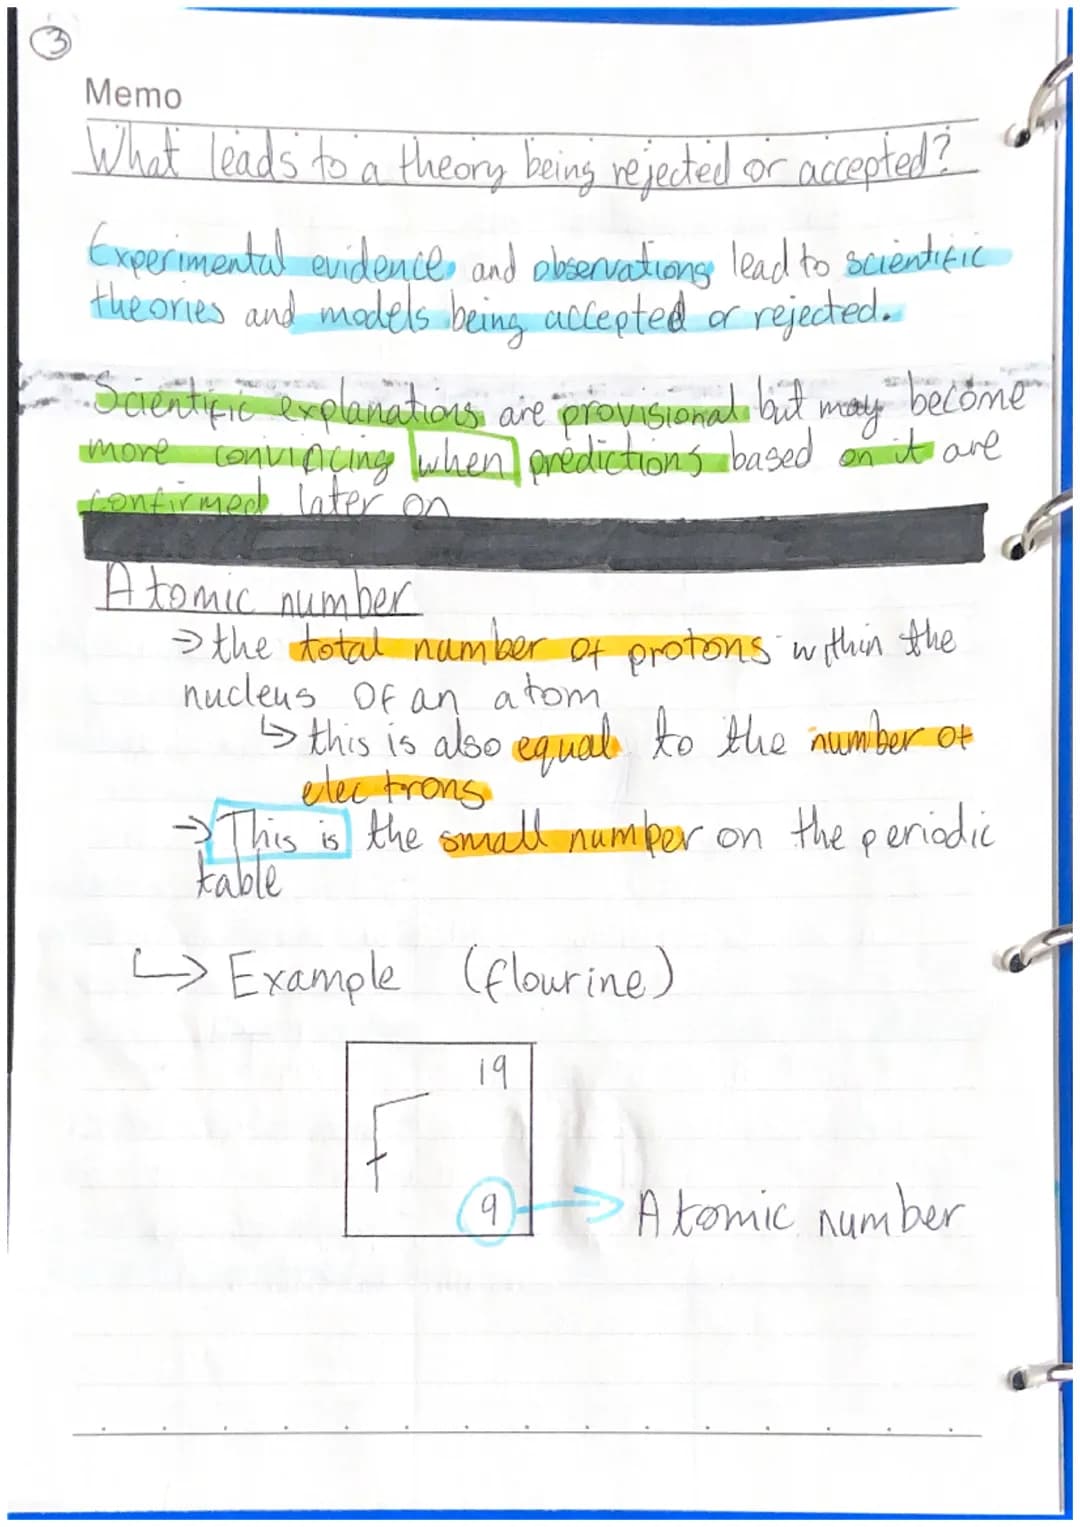 3
Memo
What leads to a theory being rejected or accepted?
Experimental evidence and observations lead to scientific
theories and models being accepted or rejected.
Scientific explanations are provisional but may become
more convincing when predictions based on it are
confirmed later on
Atomic number
→ the total number of protons within the
nucleus of an atom
↳ this is also equal to the number of
electrons
→ This is the small number on the periodic
table
↳ Example (flourine)
19
F
9 → Atomic number